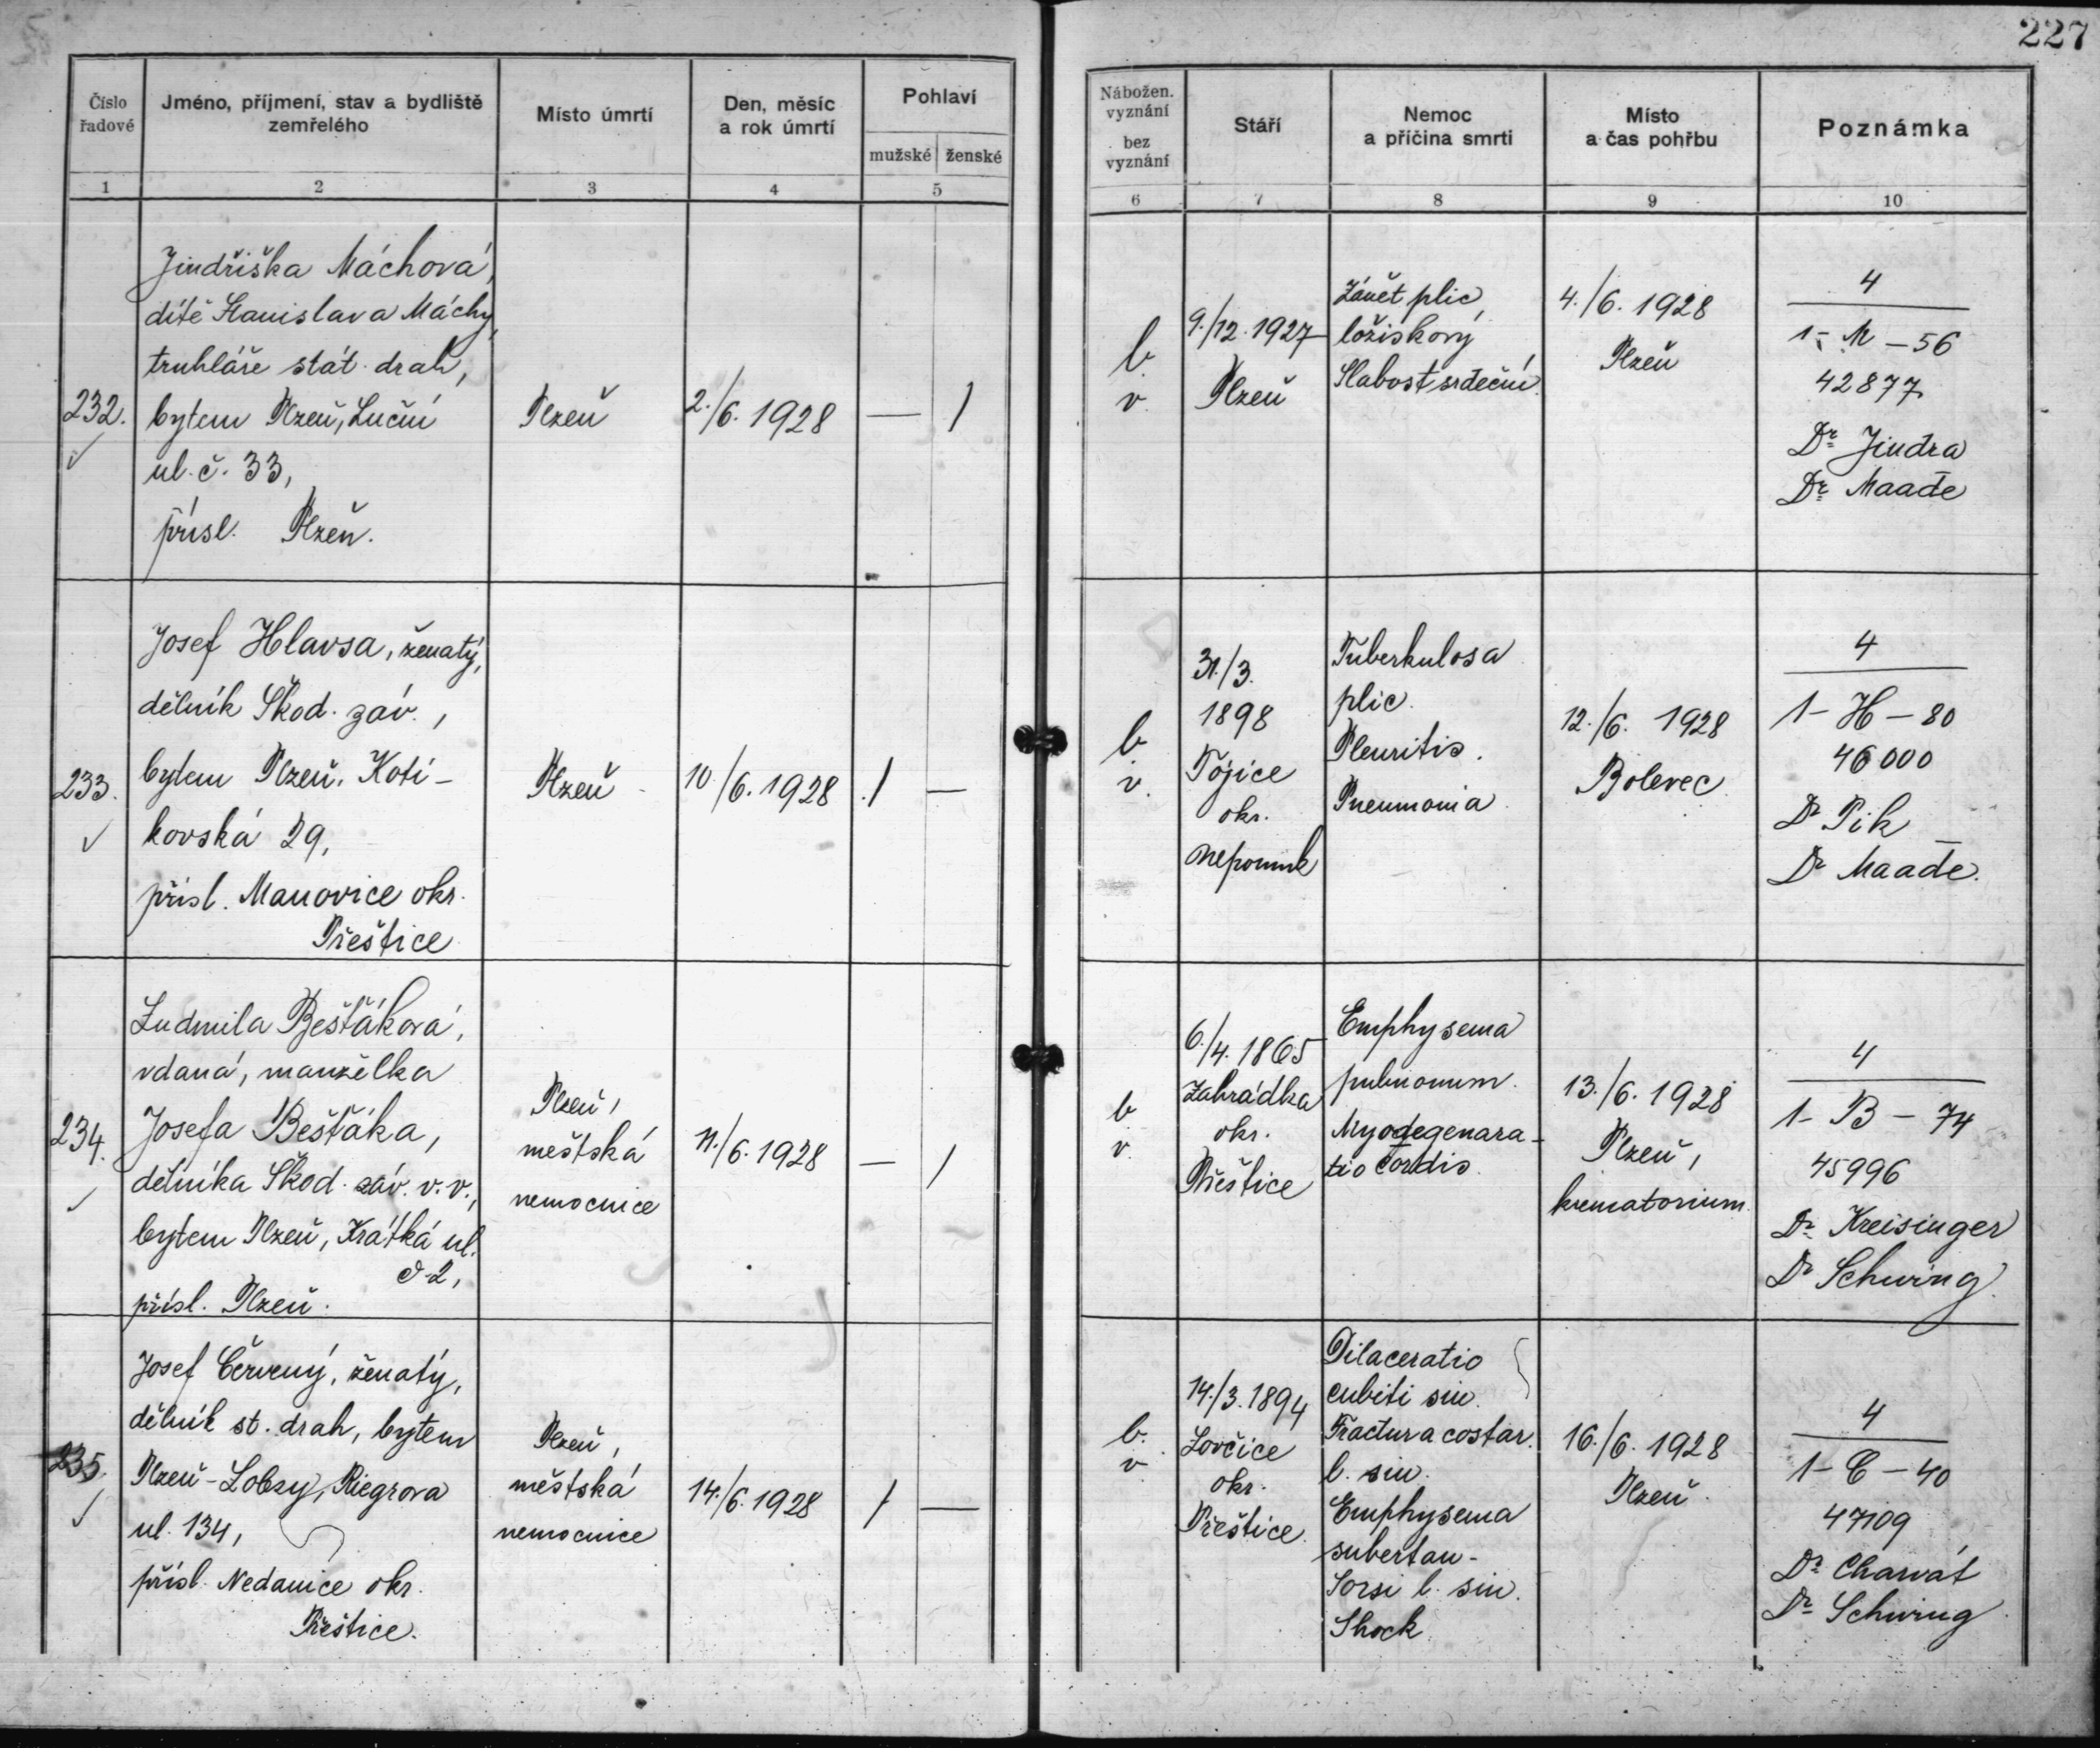 227
Číslo řadové
Jméno, příjmení, stav a bydliště zemřelého
Místo úmrtí
Den, měsíc a rok úmrtí
Pohlaví
mužské ženské
Nábožen. vyznání
bez vyznání
Stáří
Nemoc a příčina smrti
Místo a čas pohřbu
Poznámka
1 2 3 4 5 6 7 8 9 10
232.
Jindřiška Máchová,
dítě Stanislava Máchy,
truhláře stát. drah,
bytem Plzeň, Luční
ul. č. 33,
přísl. Plzeň.
Plzeň
2./6. 1928
— /
b.
v.
9./12. 1927
Plzeň
Zánět plic
ložiskový
Slabost srdeční.
4./6. 1928
Plzeň
4
1 - M - 56
42877
Dr Jindra
Dr Maade
233.
Josef Hlavsa, ženatý,
dělník Škod. záv.,
bytem Plzeň, Koti-
kovská 29,
přísl. Manovice okr.
Přeštice
Plzeň
10./6. 1928
/ —
b.
v.
31./3.
1898
Tojice
okr.
Nepomuk
Tuberkulosa
plic.
Pleuritis.
Pneumonia
12./6. 1928
Bolevec
4
1 - H - 80
46000
Dr Pik
Dr Maade.
234.
Ludmila Bešťáková,
vdaná, manželka
Josefa Bešťáka,
dělníka Škod. záv. v. v.,
bytem Plzeň, Krátká ul.
č. 2,
přísl. Plzeň.
Plzeň,
městská
nemocnice
11./6. 1928
— /
b.
v.
6./4. 1865
Zahrádka
okr.
Přeštice
Emphysema
pulmonum.
Myodegenara-
tio cordis
13./6. 1928
Plzeň,
krematorium.
4
1 - B - 74
45996
Dr Kreisinger
Dr Schwing.
235.
Josef Červený, ženatý,
dělník st. drah, bytem
Plzeň-Lobzy, Riegrova
ul. 134,
přísl. Nedanice okr.
Přeštice.
Plzeň,
městská
nemocnice
14./6. 1928
/ —
b.
v.
14./3. 1894
Lovčice
okr.
Přeštice.
Dilaceratio
cubiti sin.
Fractura costar.
l. sin.
Emphysema
subertan-
dorsi l. sin.
Shock
16./6. 1928
Plzeň.
4
1 - Č - 40
47109
Dr Charvát
Dr Schwing